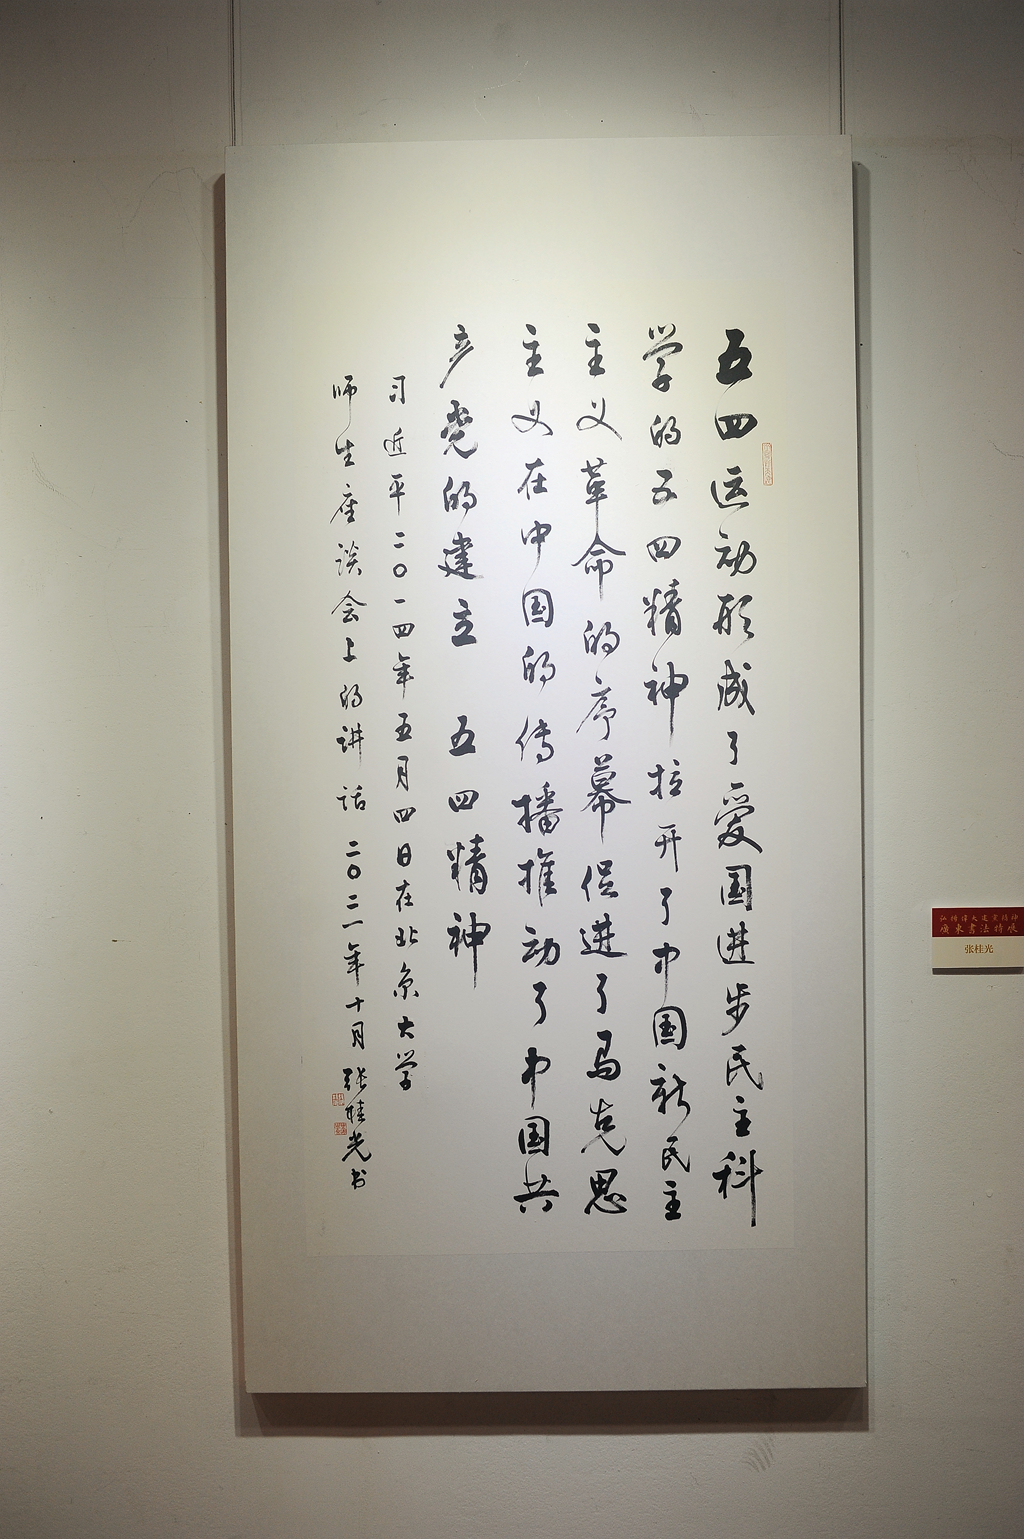 五四运动形成了爱国进步民主科
学的五四精神拉开了中国新民主
主义革命的序幕促进了马克思
主义在中国的传播推动了中国共
产党的建立 五四精神
习近平二〇一四年五月四日在北京大学
师生座谈会上的讲话 二〇二一年十月 张桂光书
弘扬偉大建黨精神
廣東書法特展
张桂光